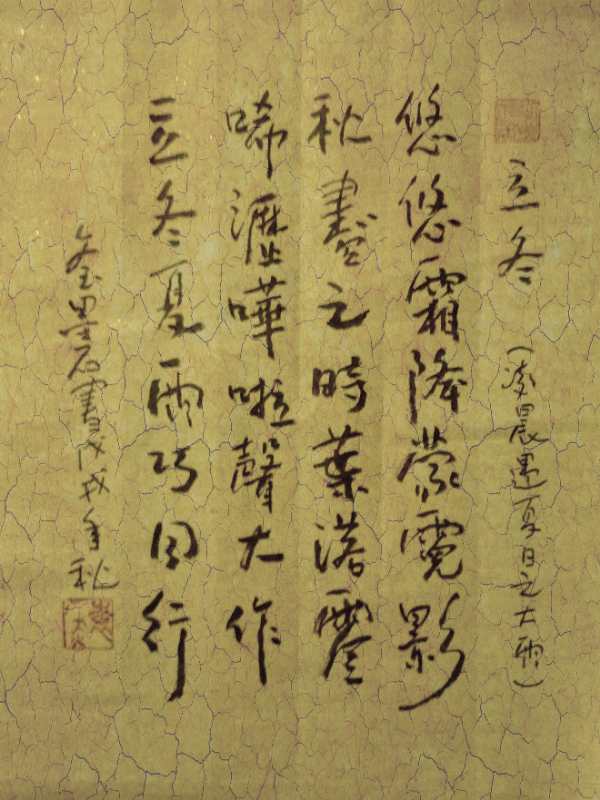 立冬（凌晨遇夏日之大雨）
悠悠霜降蒙霓影
秋盡之時葉落零
唏瀝嘩啦聲大作
立冬夏雨巧同行
金墨石書戊戌年秋